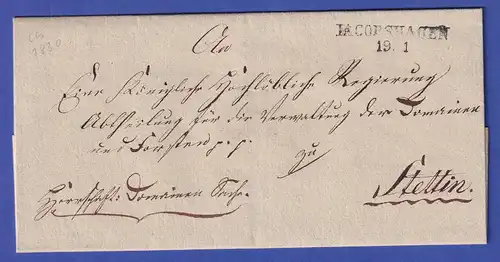 ca
1830
JACOBSHAGEN
19. 1
An
Eine Königliche Hochlöbliche Regierung
Abtheilung für die Verwaltung der Domainen
und Forsten p. p.
zu
Stettin.
Herrschaftl: Domainen Sache.